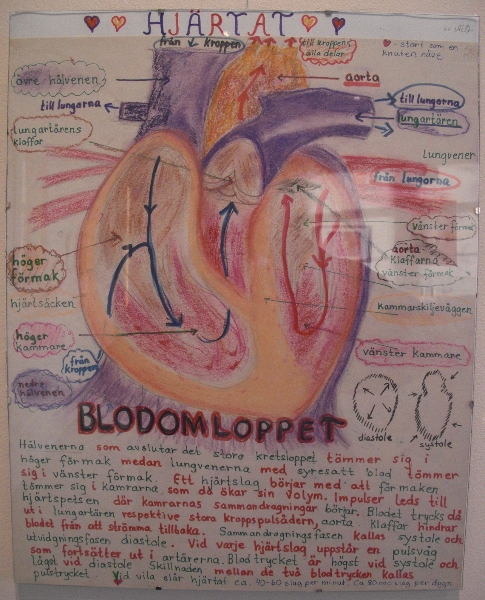 HJÄRTAT
från kroppen
till kroppens
alla delar
- stort som en
knuten näve
övre hålvenen
aorta
till lungorna
till lungorna
lungartären
lungartärens
klaffar
lungvener
från lungorna
vänster förmak
aorta
klaffarna
vänster förmak
höger
förmak
hjärtsäcken
kammarskiljeväggen
höger
kammare
vänster kammare
från
kroppen
nedre
hålvenen
diastole
systole
BLODOMLOPPET
Hålvenerna som avslutar det stora kretsloppet tömmer sig i
höger förmak medan lungvenerna med syresatt blod tömmer
sig i vänster förmak. Ett hjärtslag börjar med att förmaken
tömmer sig i kamrarna som då ökar sin volym. Impulser leds till
hjärtspetsen där kamrarnas sammandragningar börjar. Blodet trycks då
ut i lungartären respektive stora kroppspulsådern, aorta. Klaffar hindrar
blodet från att strömma tillbaka. Sammandragningsfasen kallas systole och
utvidgningsfasen diastole. Vid varje hjärtslag uppstår en pulsvåg
som fortsätter ut i artärerna. Blodtrycket är högst vid systole och
lägst vid diastole Skillnaden mellan de två blodtrycken kallas
pulstrycket. Vid vila slår hjärtat ca. 40-60 slag per minut, ca 80 000 slag per dygn.